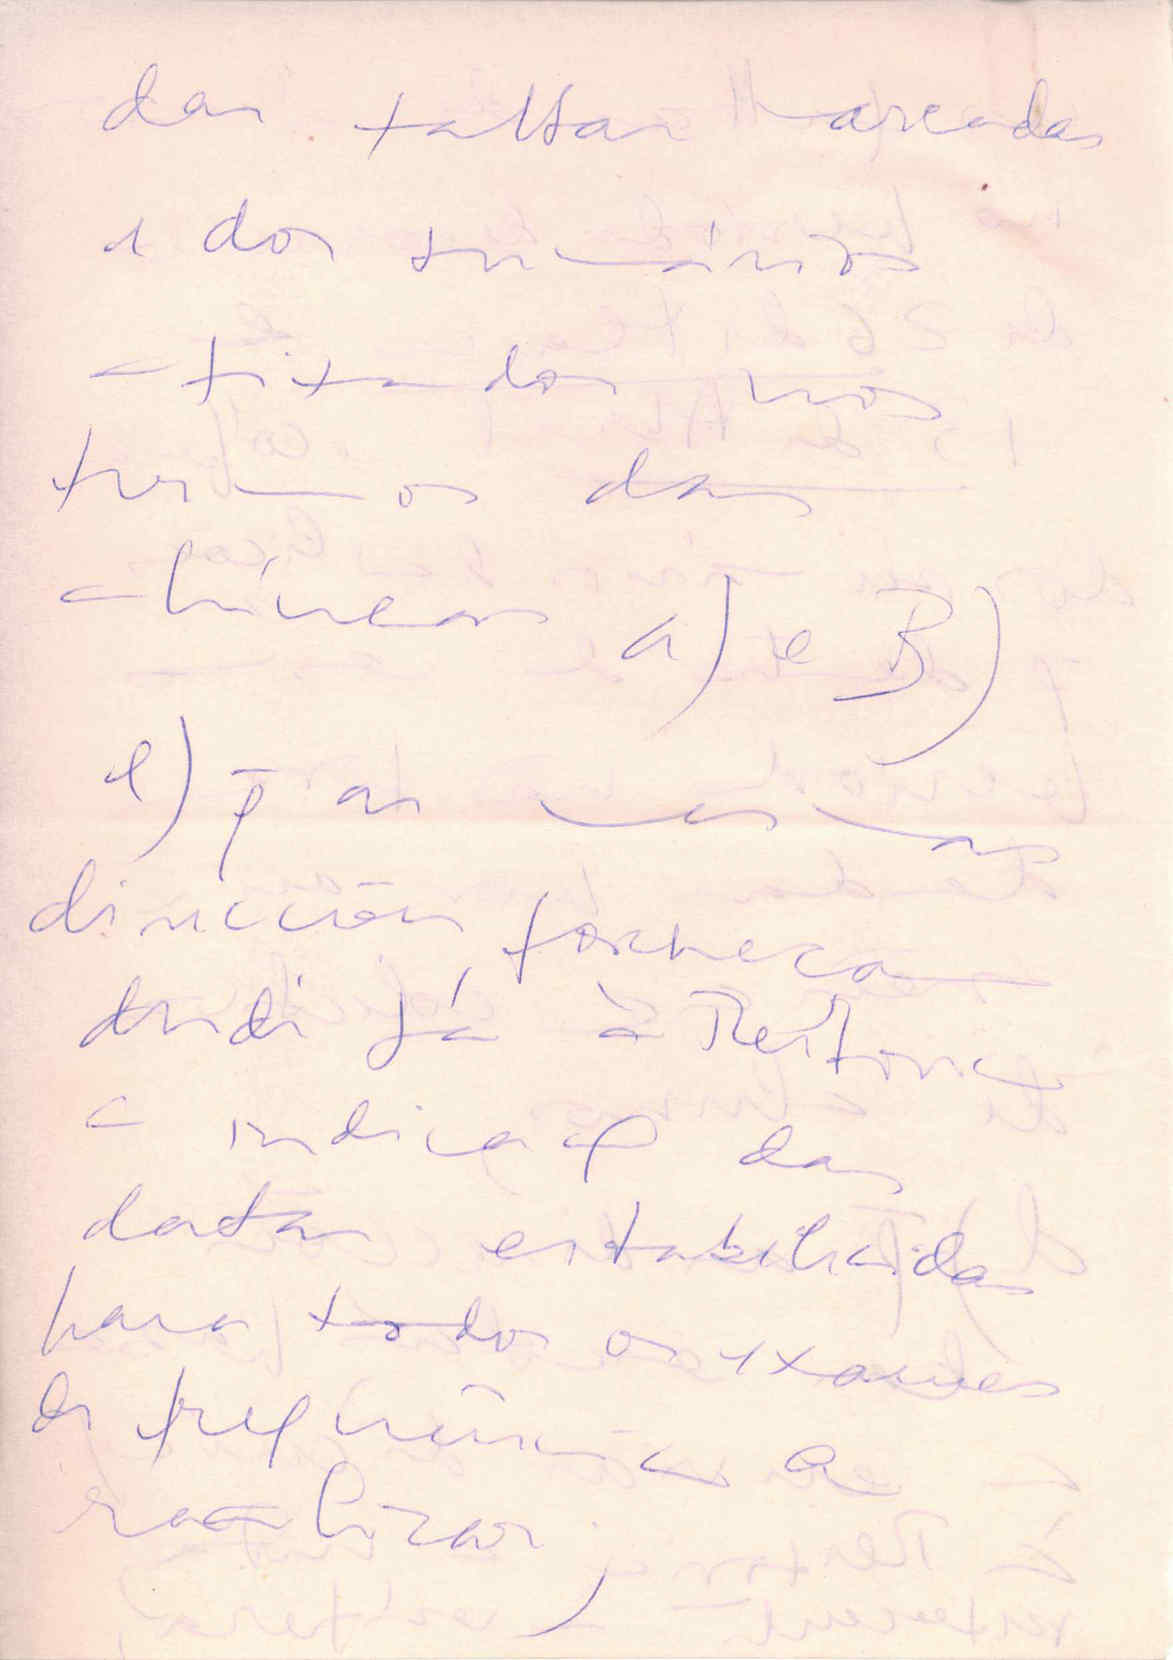 das faltas marcadas
e dos sumários
afixados nos
termos das
alíneas a) e B)
e) q as mesmas
direcções forneçam
desde já à Reitoria
a indicação das
datas estabelecidas
para todos os exames
de frequência a
realizar;